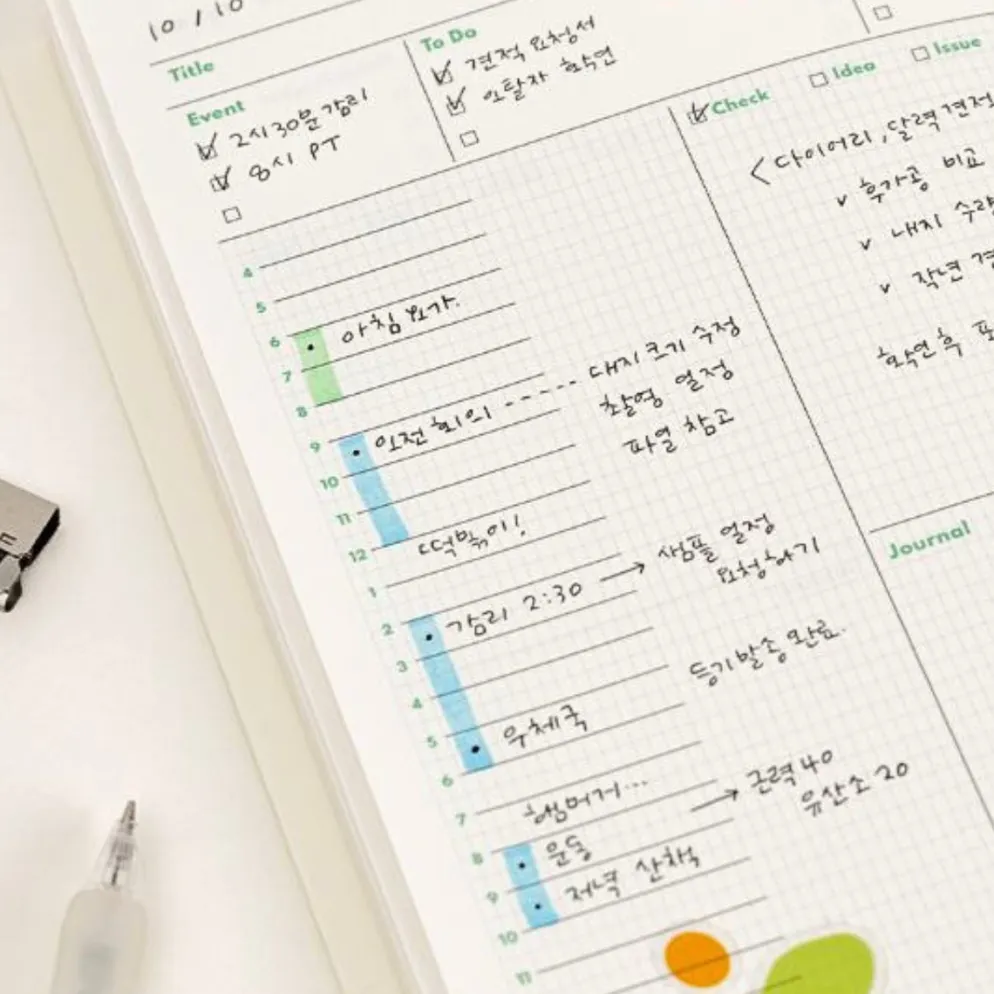 10 / 10
Title
Event
☑ 2시30분 감리
☑ 8시 PT
☐
To Do
☑ 견적 요청서
☑ 오탈자 확인
☐
☐
☑ Check
☐ Idea
☐ Issue
<다이어리, 달력 견적
v 후가공 비교
v 내지 수량
v 작년 견
확인 후 포
4
5
6 • 아침 요가.
7
8
9 • 오전 회의 ----- 내지 크기 수정
촬영 일정
파일 참고
10
11
12 떡볶이!
1
2 • 감리 2:30 → 샘플 일정
요청하기
3
4
5 • 우체국 등기발송 완료.
6
7 햄버거...
8 • 운동 → 근력 40
유산소 20
9 • 저녁 산책
10
11
Journal